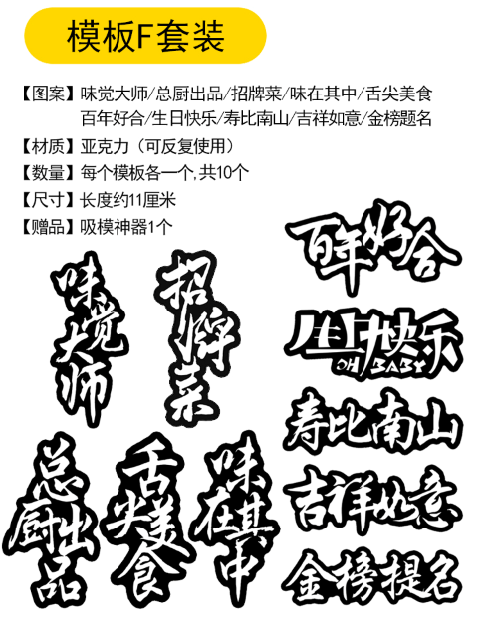 模板F套装
【图案】味觉大师/总厨出品/招牌菜/味在其中/舌尖美食
百年好合/生日快乐/寿比南山/吉祥如意/金榜题名
【材质】亚克力（可反复使用）
【数量】每个模板各一个,共10个
【尺寸】长度约11厘米
【赠品】吸模神器1个
味觉大师
招牌菜
百年好合
生日快乐
OH BABY
寿比南山
总厨出品
舌尖美食
味在其中
吉祥如意
金榜提名